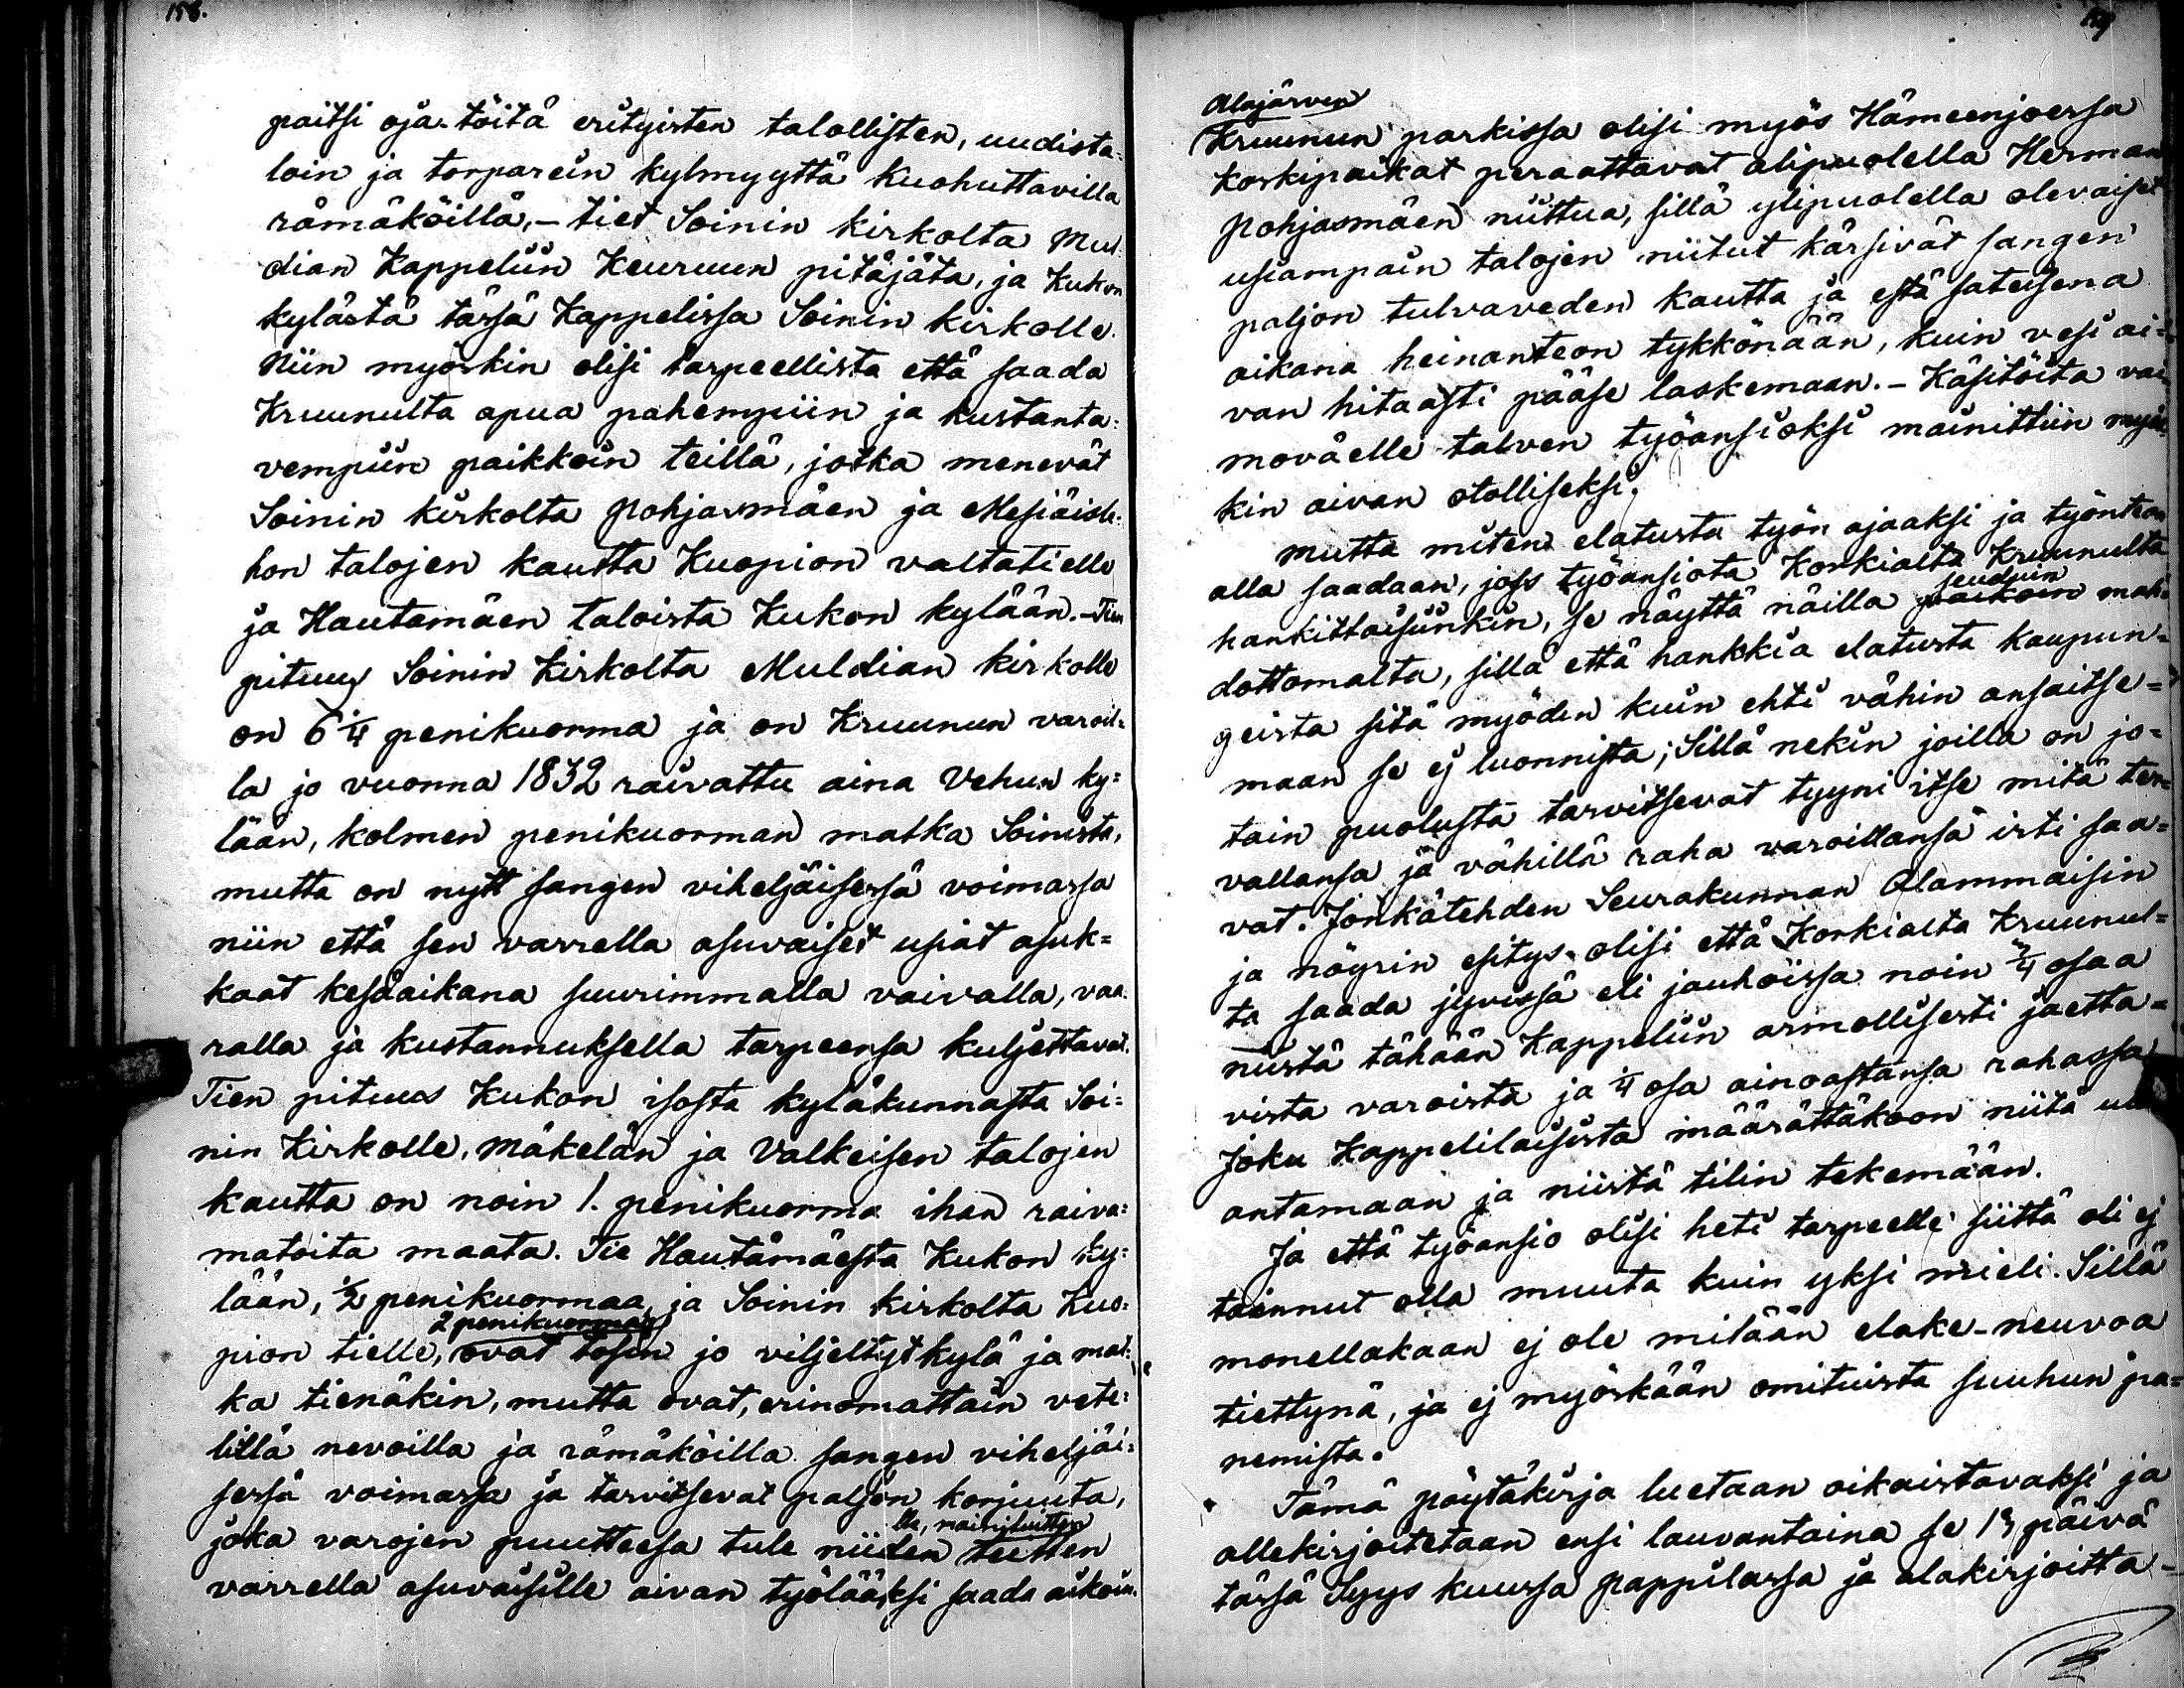 158.
paitsi oja-töitä erityisten talollisten, uudista=
loin ja torparein kylmyyttä kuohuttavilla
rämäköillä, – tiet Soinin kirkolta Mul=
dian Kappeliin Keuruun pitäjätä, ja Kukon
kylästä täsä Kappelissa Soinin kirkolle.
Niin myöskin olisi tarpeellista että saada
Kruunulta apua pahempiin ja kustanta=
vempiin paikkoin teillä, jotka menevät
Soinin kirkolta Pohjasmäen ja Mesiäisle=
hon talojen kautta Kuopion valtatielle
ja Hautamäen taloista Kukon kylään. – Tien
pituus Soinin Kirkolta Muldian kirkolle
on 6 1/4 penikuorma ja on Kruunun varoil=
la jo vuonna 1832 raivattu aina Vehun ky=
lään, kolmen penikuorman matka Soinista,
mutta on nytt sangen viheljäisessä voimassa
niin että sen varrella asuvaiset usiat asuk=
kaat kesäaikana suurimmalla vaivalla, vaa=
ralla ja kustannuksella tarpeensa kuljettavat.
Tien pituus Kukon isosta kyläkunnasta Soi=
nin Kirkolle, Mäkelän ja Valkeisen talojen
kautta on noin 1. penikuorma ihan raiva=
matoita maata. Tie Hautamäesta Kukon ky=
lään, 1/2 penikuormaa, ja Soinin kirkolta Kuo=
2 penikuormaa
pion tielle, ovat tosin jo viljeltyt kylä ja mat=
ka tienäkin, mutta ovat, erinomattain vete=
lillä nevoilla ja rämäköilla sangen viheljäi=
sessä voimassa ja tarvitsevat paljon korjuuta,
lle, mainituitten
joka varojen puutteesa tule niiden teitten
varrella asuvaisille aivan työlääksi saada aikoin.
159
Alajärven
Kruunun parkissa olisi myös Hämeenjoersa
koskipaikat peraattavat alipuolella Herman
Pohjasmäen niittua, sillä ylipuolella olevaiset
usiampain talojen niitut kärsivät sangen
paljon tulvaveden kautta ja estä sateisena
aikana heinanteon tykkönään, kuin vesi ai=
van hitaasti pääse laskemaan. – Käsitöita vai
moväelle talven työansioksi mainittiin myös=
kin aivan otolliseksi.
Mutta miten elatusta työn ajaaksi ja työnteon
alla saadaan, joss työansiota Korkialta Kruunulta
seuduin
hankittaisiinkin, se näyttä näilla paikoin mah=
dottomalta, sillä että hankkia elatusta kaupun=
geista sitä myöden kuin ehti vähin ansaitse=
maan se ej luonnista; Sillä nekin joilla on jo=
tain puolusta tarvitsevat tyyni itse mitä ter=
vallansa ja vähillä raha varoillansa irti saa=
vat. Jonkätehden Seurakunnan Alammaisin
ja nöyrin esitys olisi että Korkialta Kruunul=
ta saada jyvissä eli jauhoissa noin 3/4 osaa
niistä tähään Kappeliin armollisesti jaetta=
vista varoista ja 1/4 osa ainoastansa rahassa
Joku Kappelilaisista määrättäköön niitä
antamaan ja niistä tilin tekemään.
Ja että työansio olisi heti tarpeelle siittä oli ej
tainnut olla muuta kuin yksi mieli. Sillä
monellakaan ej ole mitään elake-neuvoa
tiettynä, ja ej myöskään omituista suuhun pa=
nemista.
Tämä pöytäkirja luetaan oikaistavaksi ja
allekirjoitetaan ensi lauvantaina se 19 päivä
täsä Syys kuussa pappilassa ja alakirjoitta-